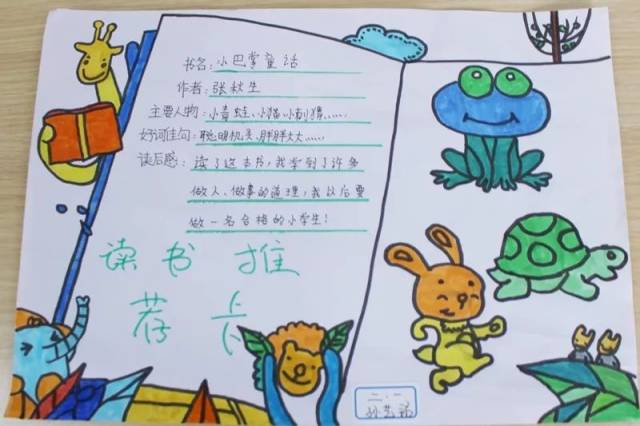 书名：小巴掌童话
作者：张秋生
主要人物：小青蛙、小猫、小刺猬……
好词佳句：聪明机灵、胖胖大大……
读后感：读了这本书，我学到了许多
做人、做事的道理，我以后要
做一名合格的小学生！
读书推
荐卡
二.一
孙艺